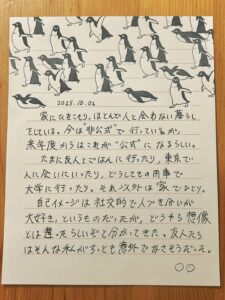 2025.10.02
家にひきこもり、ほとんど人と会わない暮らし
をしている。今は“非公式”で行っているが、
来年度からはこれが“公式”になるらしい。
たまに友人とごはんに行ったり、東京で
人に会いにいったり、どうしてもの用事で
大学に行ったり。それ以外は家でひとり。
自己イメージは社交的で人づき合いが
大好き、というものだったが、どうやら想像
とは違ったらしいぞと分かってきた。友人たち
はそんな私がちっとも意外でなさそうだった。
○○